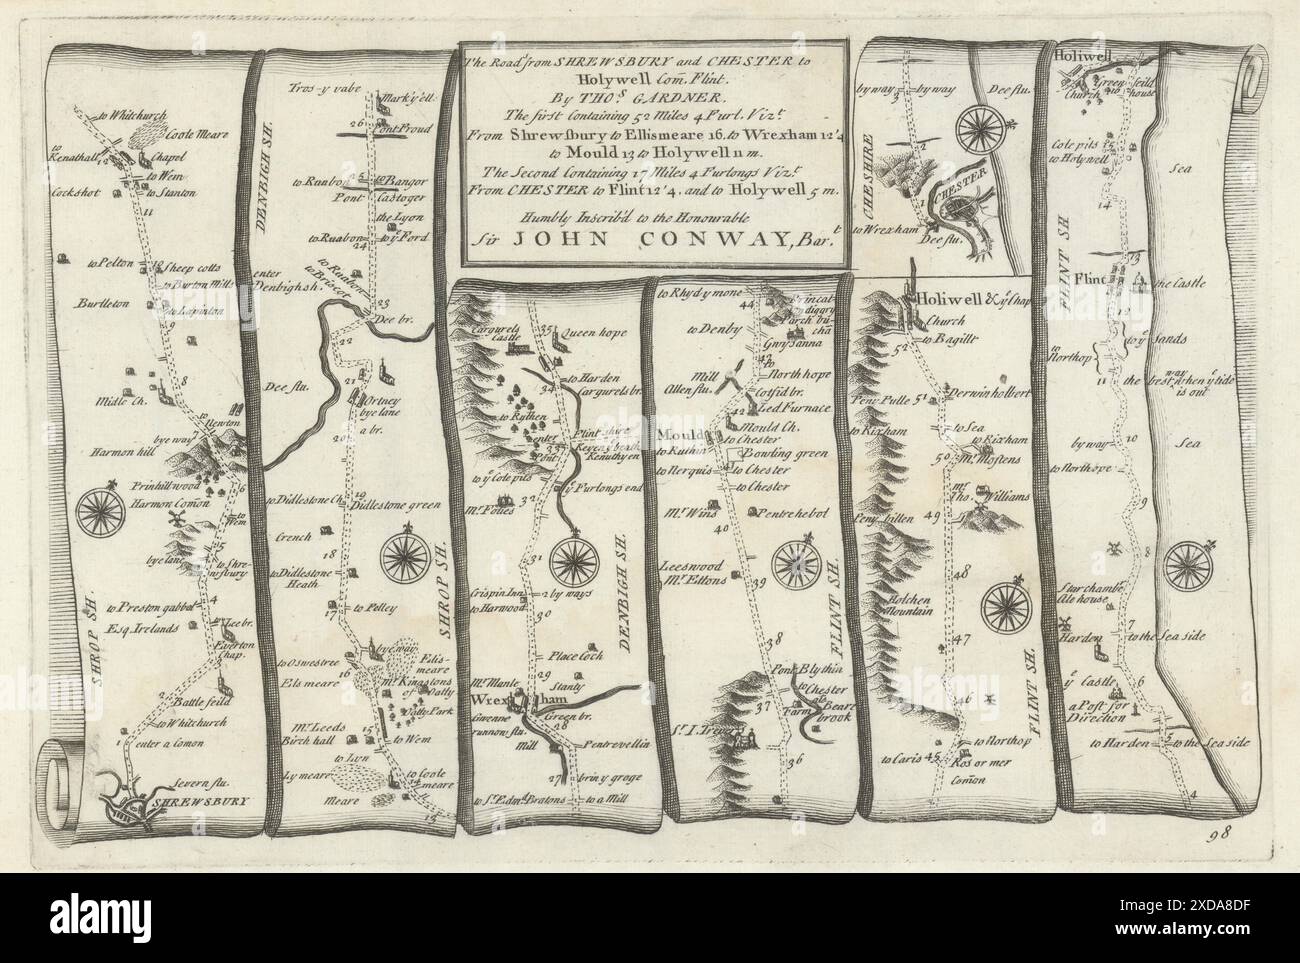 The Road's from SHREWSBURY and CHESTER to
Holywell Com. Flint.
By THOS. GARDNER.
The first Containing 52 Miles 4 Furl. Vizt.
From Shrewsbury to Ellismeare 16. to Wrexham 12'4
to Mould 13 to Holywell 11 m.
The Second Containing 17 Miles 4 Furlongs Vizt.
From CHESTER to Flint 12'4, and to Holywell 5 m.
Humbly Inscrib'd to the Honourable
Sir JOHN CONWAY, Bart.
to Whitchurch
Coole Meare
to Kenathall
12
Chapel
to Wem
Cockshot
to Stanton
11
to Pelton
10
Sheep cotts
to Burton Mills
Burlleton
to Lepinton
9
8
Midle Ch.
to Newton
bye way
7
Harmon hill
Prinhill wood
6
Harmon Comon
to Wem
5
bye lane
to Shrewsbury
to Preston gabbel
4
Esq. Irelands
Lee br.
Everton Chap.
SHROP SH.
2
Battle feild
to Whitchurch
1
enter a Comon
Severn flu.
SHREWSBURY
DENBIGH SH.
Tros-y vabe
Mark'y'ell
26
Pont Proud
to Ruabon
25
to Bangor
Pont
Castoger
the Lyon
to Ruabon
to ye Ford
24
to Ruabon
to Briscot
enter Denbighsh.
23
Dee br.
22
Dee flu.
21
Ortney
bye lane
20
a br.
to Didlestone Ch.
19
Didlestone green
Crench
18
to Didlestone Heath
17
to Pelley
SHROP SH.
bye way
to Oswestree
Elismeare
Elsmeare
16
Mr. Kingstons of Oatly
Oatly Park
Mr. Leeds
Birch hall
15
to Wem
to Lyn
Lymeare
to Coole meare
14
Meare
13
Cargurels Castle
35
Queen hope
34
to Harden
Cargurels br.
to Ruthen
33
Flint shire
enter
Pont
Kenuthyen
to ye Cole pits
ye Furlongs end
32
Mr. Folies
31
Crispin Inn
2 by ways
to Harwood
30
DENBIGH SH.
Place Coch
29
Mr. Manle
Stanty
Wrexham
Gwenne runnow flu.
Green br.
28
Mill
Pentrevellin
27
briny groge
to St. Edmd. Bratons
to a Mill
to Rhyd y mone
44
to Denby
Gwysanna
43
Mill
to North hope
Allen flu.
Cotsid br.
42
Led Furnace
Mould Ch.
Mould
to Chester
to Ruthin
Bowling green
to Nerquis
to Chester
to Chester
Mr. Wins
Pentrehebol
40
Leeswood
Mr. Ettons
39
FLINT SH.
38
Pont Blythin
to Chester
als
Farm
Beare brook
37
St. I. Trevers
36
Holiwell & ye Chap
Church
52
to Bagillt
Peny Pulle
51
Derwinholbert
to Sea
to Kixham
to Kixham
50
Mr. Mostens
Mr. Thos. Williams
49
Peny billen
48
Holchen Mountain
47
FLINT SH.
46
to Northop
to Caris
45
Ros or mer Comon
by way
3
by way
Dee flu.
CHESHIRE
2
1
CHESTER
to Wrexham
Dee flu.
Holiwell
Church
Green feild house
16
Cole pits
15
to Holywell
Sea
14
FLINT SH
13
Flint
the Castle
12
to ye Sands
to Northop
11
the best way when ye tide is out
by way
10
Sea
to Northope
9
8
Starchambe Ale house
Harden
7
to the Sea side
ye Castle
6
a Post for Direction
to Harden
5
to the Sea side
4
98
alamy
Image ID: 2XDA8DF
www.alamy.com